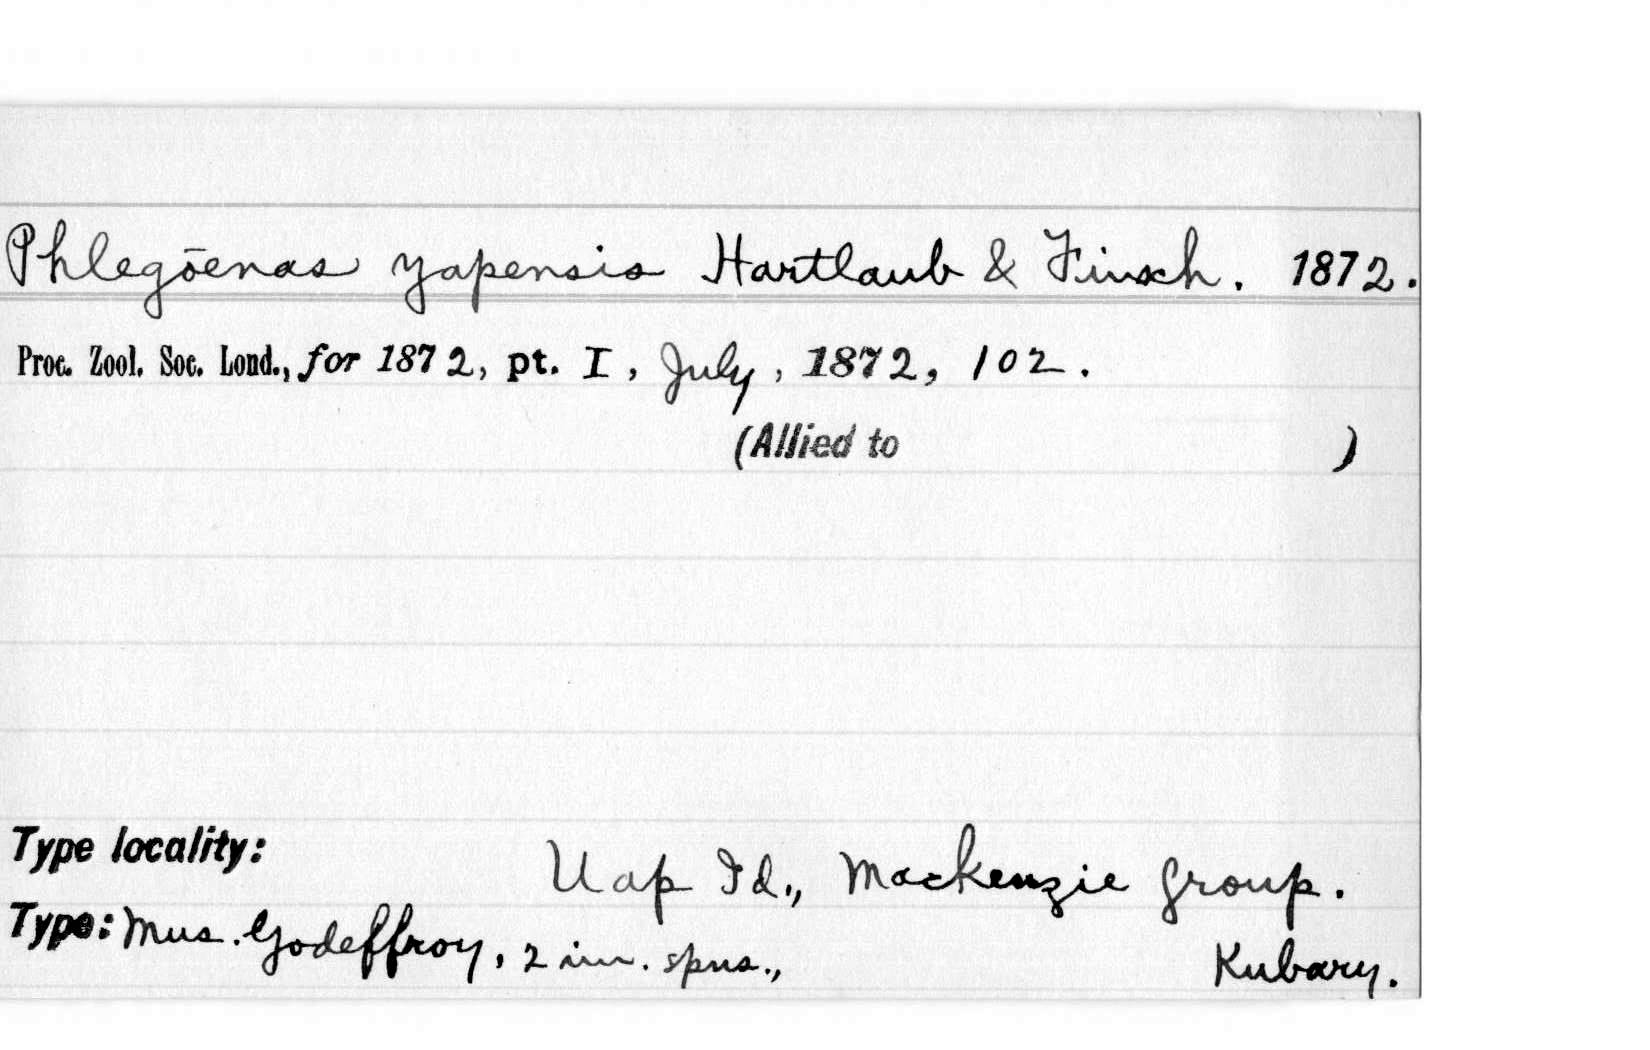 Phlegōenas yapensis Hartlaub & Finsch. 1872.
Proc. Zool. Soc. Lond., for 1872, pt. I, July, 1872, 102.
(Allied to )
Type locality: Uap Id., Mackenzie group.
Type: Mus. Godeffroy, 2 im. spns., Kubary.